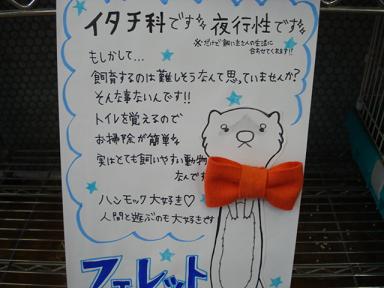 イタチ科です 夜行性です
※だけど飼い主さんの生活に
合わせてくれます!!
もしかして…
飼育するのは難しそうなんて思っていませんか?
そんな事ないんです!!
トイレを覚えるので
お掃除が簡単
実はとても飼いやすい動物
なんです
ハンモック大好き♡
人間と遊ぶのも大好きです
フェレット